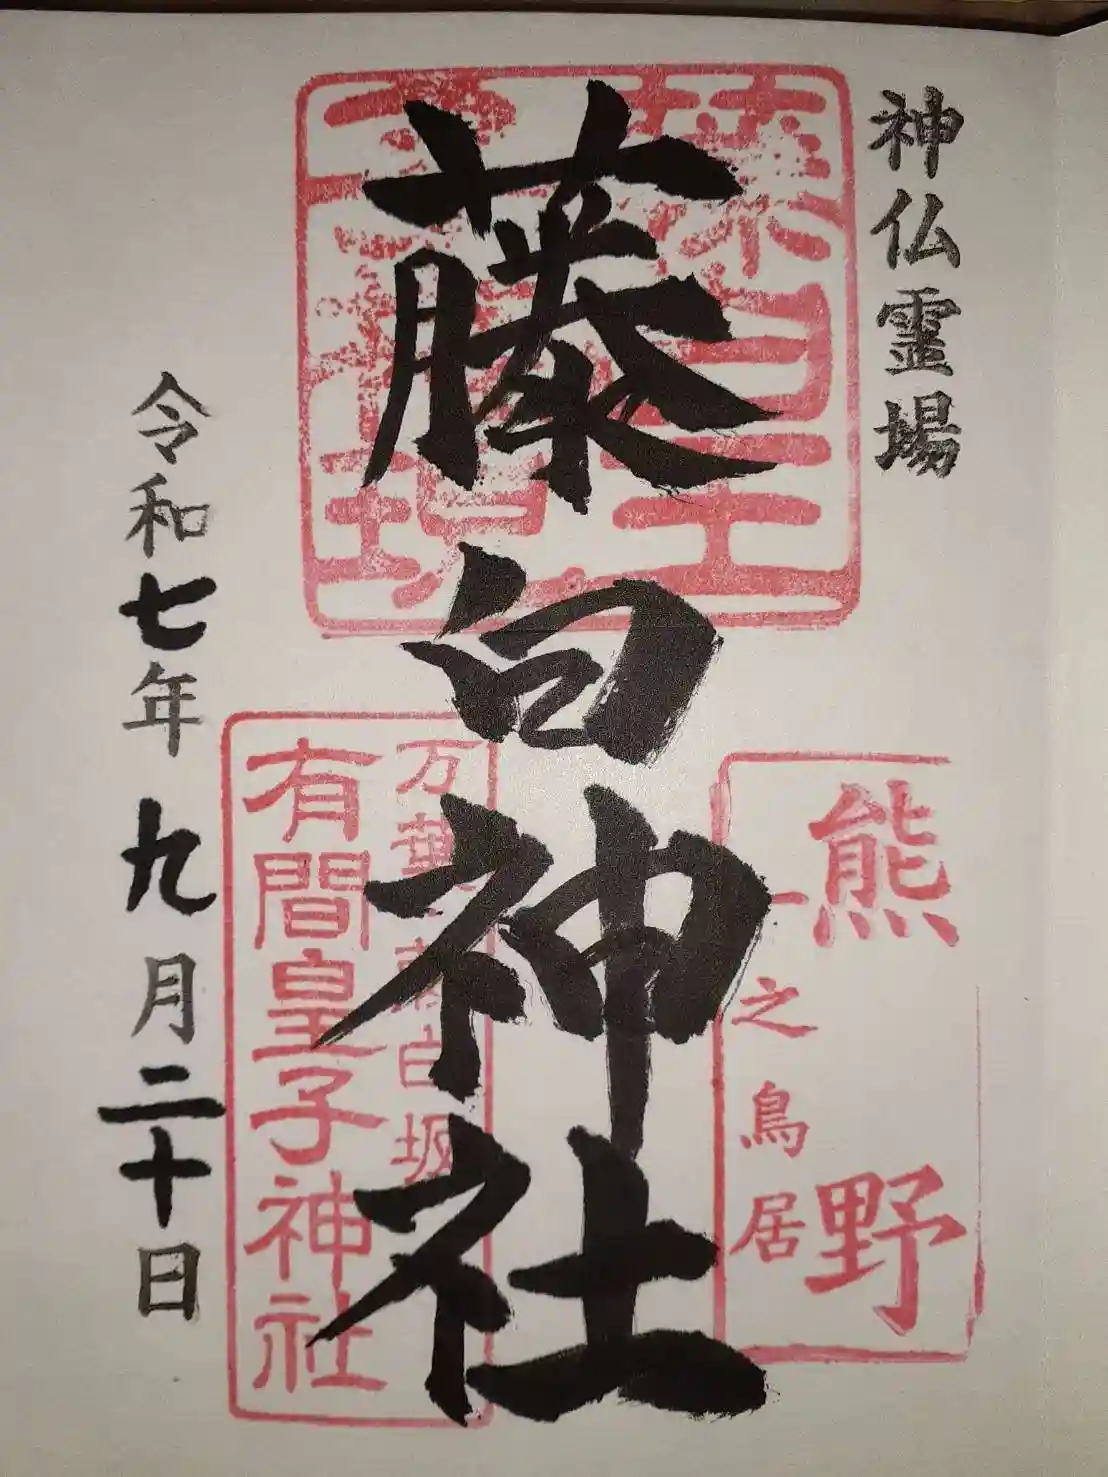 神仏霊場
藤白神社
熊野
一之鳥居
万葉 藤白坂
有間皇子神社
令和七年九月二十日